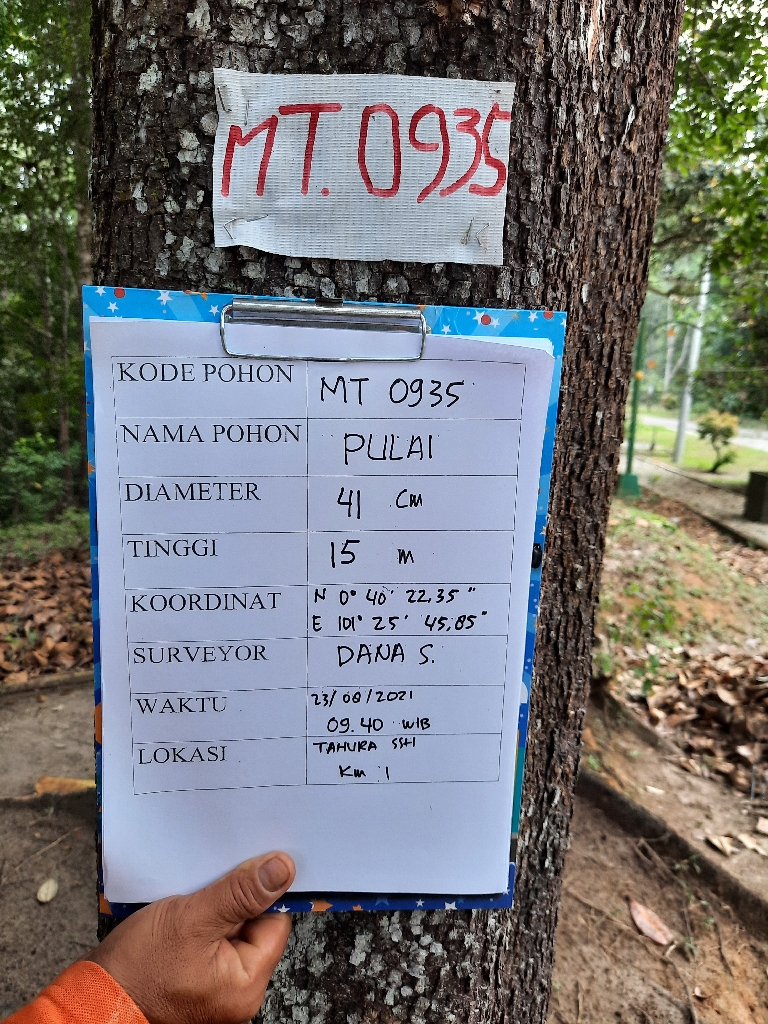 MT. 0935
KODE POHON MT 0935
NAMA POHON PULAI
DIAMETER 41 Cm
TINGGI 15 m
KOORDINAT N 0° 40' 22,35"
E 101° 25' 45,85"
SURVEYOR DANA S.
WAKTU 23/08/2021
09.40 WIB
LOKASI TAHURA SSH
Km 1